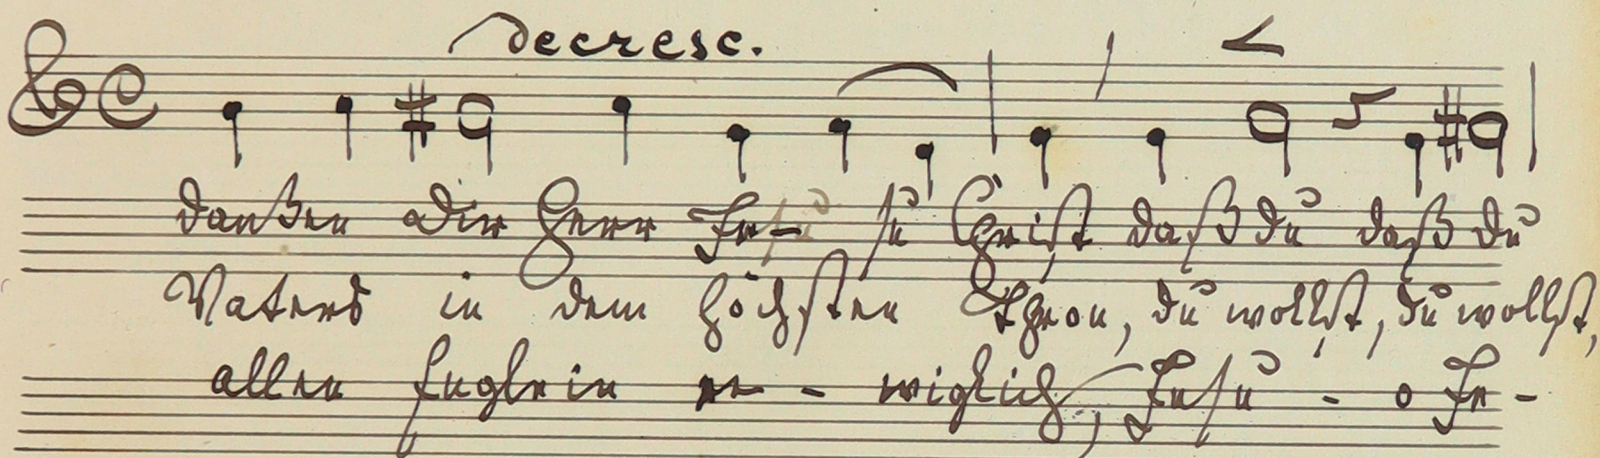 decresc.
danken dir Herr Je- su Christ daß du daß du
Vaters in dem höchsten Thron, du wollst, du wollst,
allen Englein e - wiglich, Jesu - o Je -